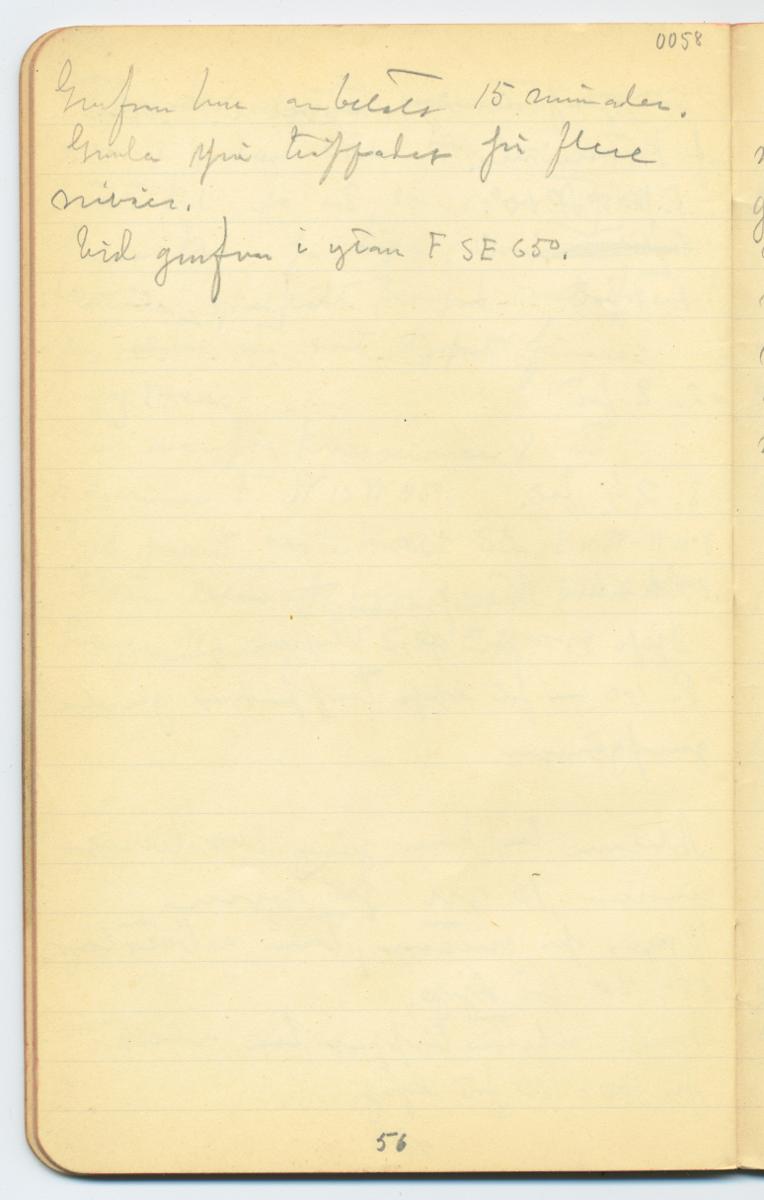 0058
Grufvan har arbetats 15 månader.
Gamla yxor träffades på flere
nivåer.
Vid grufvan i ytan F SE 65°.
56